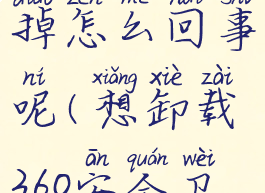 diào zěn me huí shì
掉怎么回事
ní xiǎng xiè zài
呢(想卸载
ān quán wèi
360安全卫